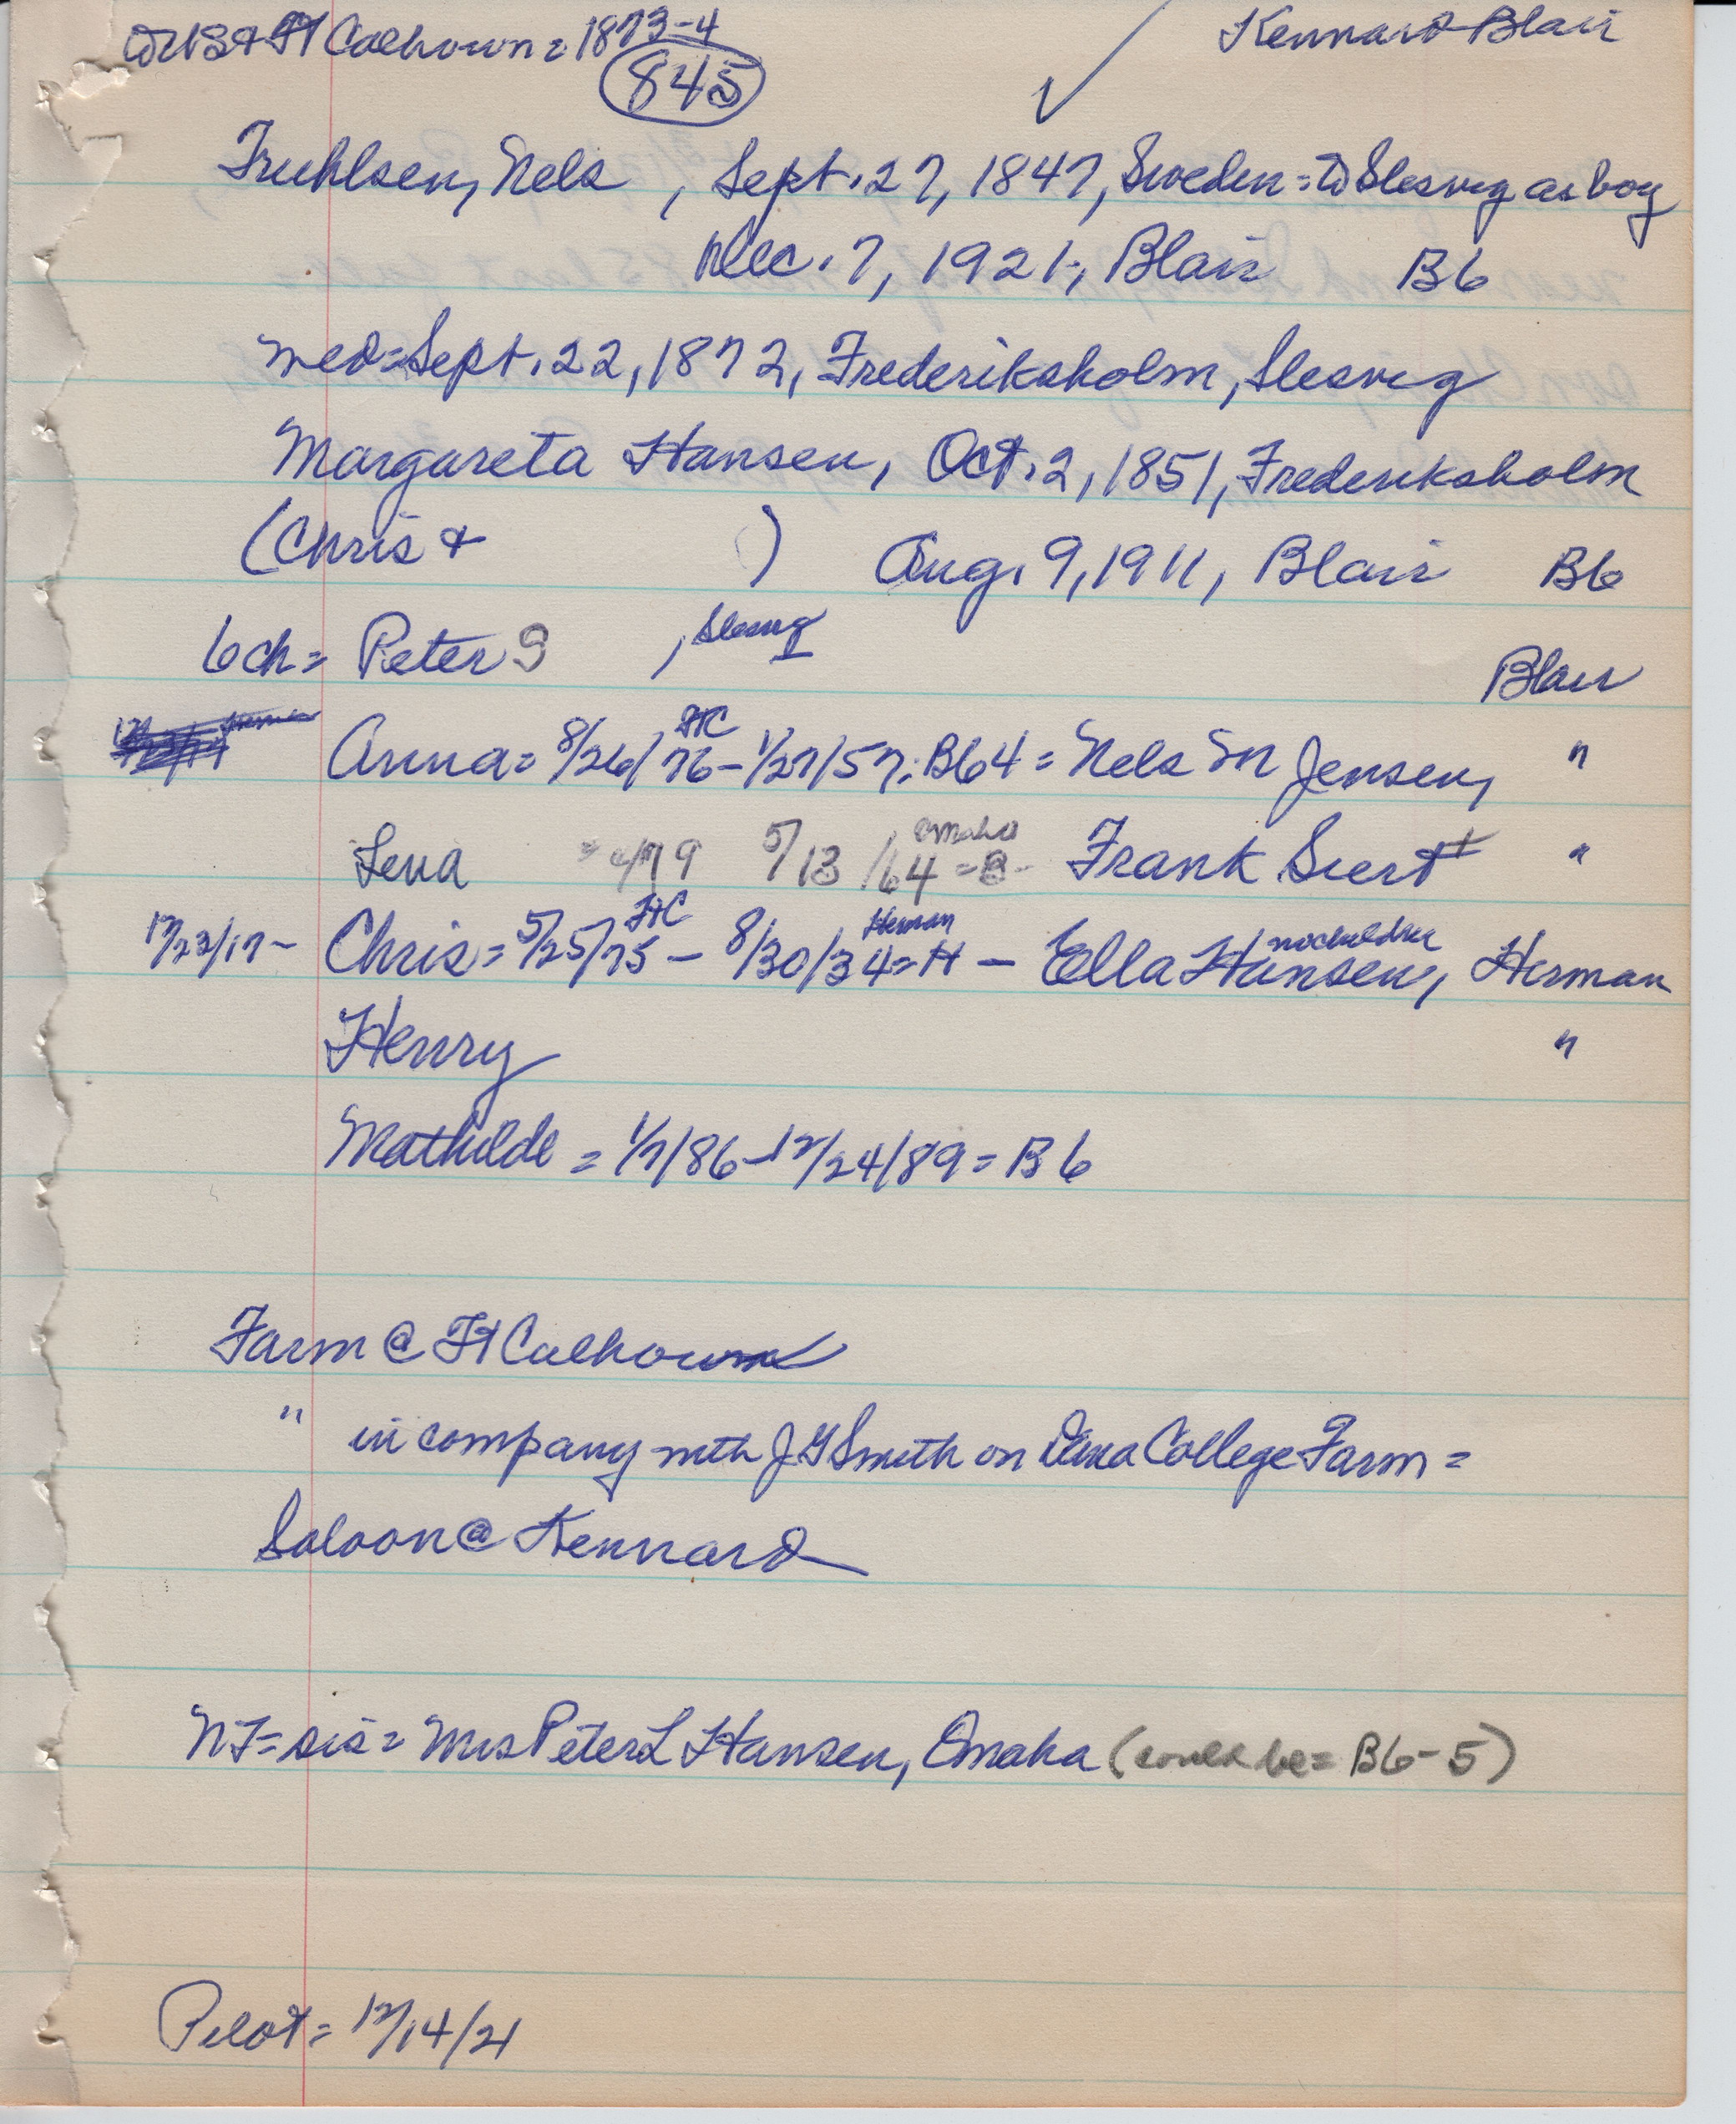 to US & Ft Calhoun = 1873-4 Kennard-Blair
845
Fruhlsen, Nels , Sept. 27, 1847, Sweden = to Slesvig as boy
Dec. 7, 1921, Blair B6
med = Sept. 22, 1872, Frederiksholm, Slesvig
Margareta Hansen, Oct. 2, 1851, Frederiksholm
(Chris & ) Aug. 9, 1911, Blair B6
6 ch = Peter S , Slesvig Blair
Anna = 8/26/76 FtC - 1/27/57; B64 = Nels M Jensen, "
Lena = 4/79 5/13/64 Omaha = B - Frank Siert "
12/23/17 - Chris = 5/25/75 FtC - 8/30/34 Herman = H - Ella Hansen, no children Herman
Henry "
Mathilde = 1/7/86 - 12/24/89 = B6
Farm @ Ft Calhoun
" in company with J G Smith on Dana College Farm =
Saloon @ Kennard
NF = sis = Mrs Peter L Hansen, Omaha (could be = B6-5)
Pilot = 12/14/21